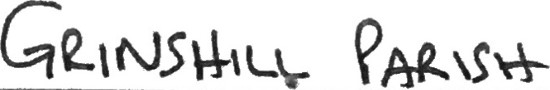 GRINSHILL PARISH